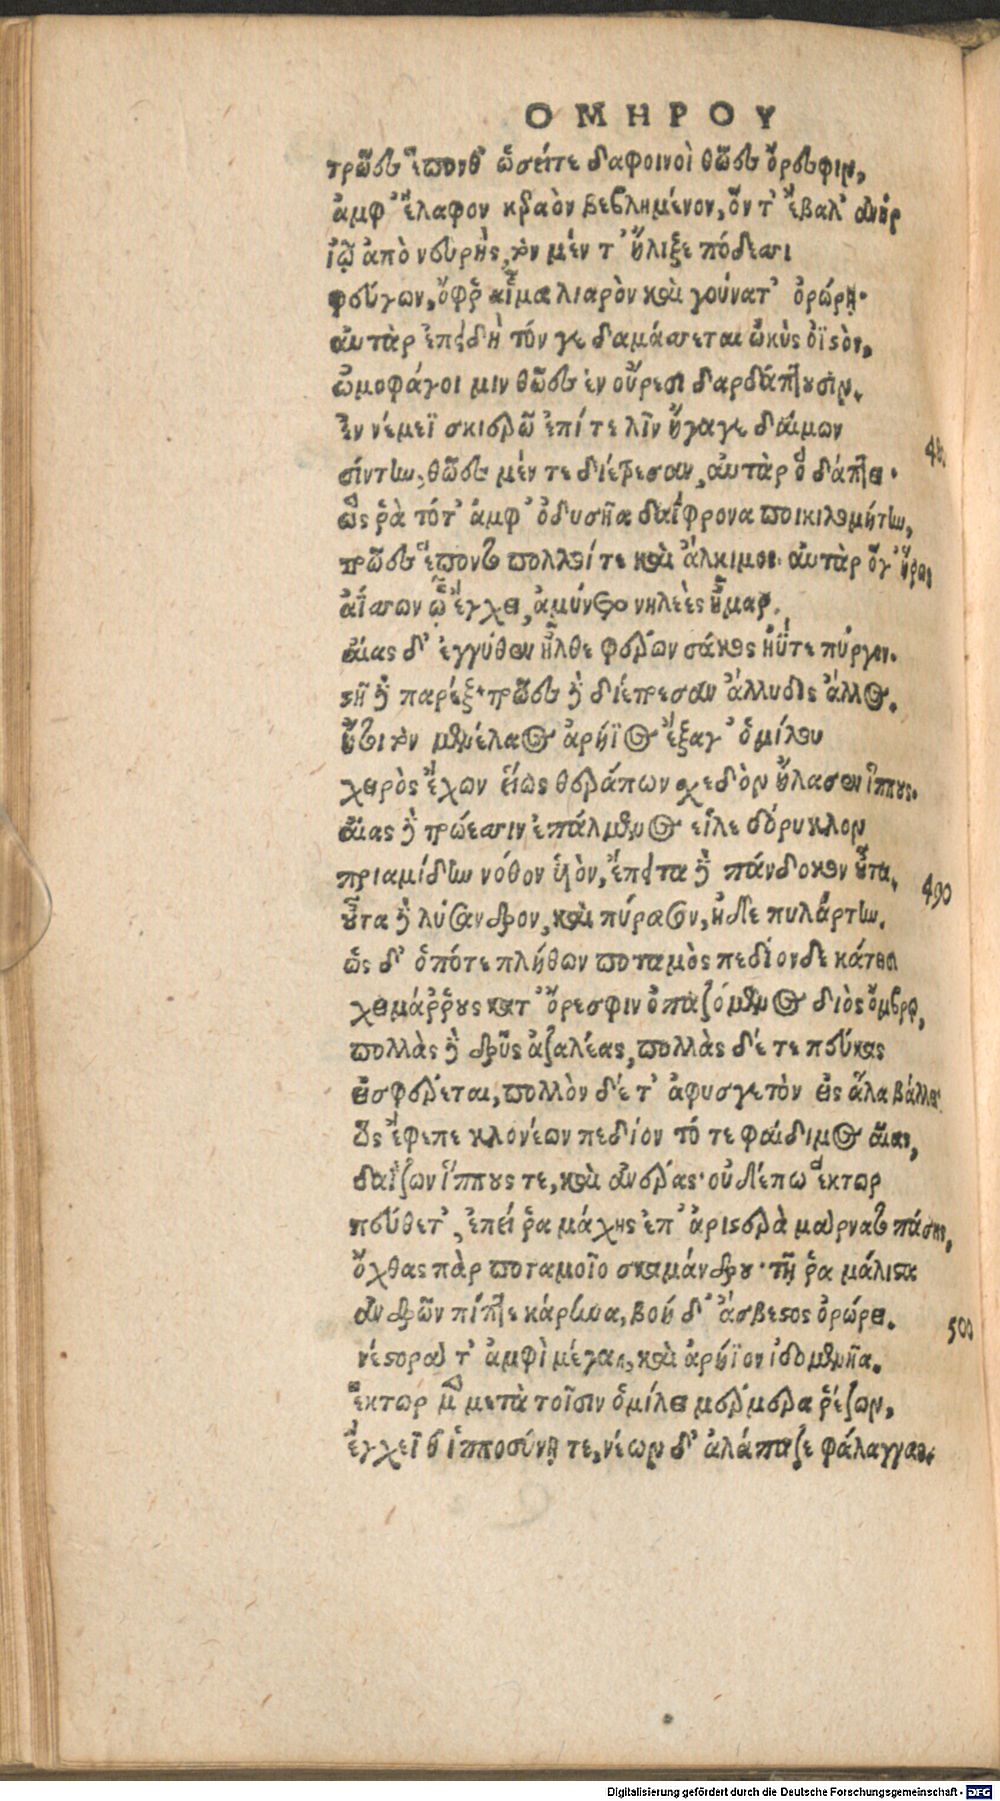 ΟΜΗΡΟΥ
τρῶες ἕπονθ' ὡσείτε δαφοινοὶ θῶες ὄρεσφιν,
ἀμφ' ἔλαφον κεραὸν βεβλημένον, ὅν τ' ἔβαλ' ἀνὴρ
ἰῷ ἀπὸ νευρῆς, τὸν μέν τ' ἤλυξε πόδεσσι
φεύγων, ὄφρ' αἷμα λιαρὸν καὶ γούνατ' ὀρώρῃ·
αὐτὰρ ἐπειδὴ τόν γε δαμάσσεται ὠκὺς ὀϊστὸς,
ὠμοφάγοι μιν θῶες ἐν οὔρεσι δαρδάπτουσιν.
ἐν νέμεϊ σκιερῷ ἐπί τε λῖν ἤγαγε δαίμων
σίντην, θῶες μέν τε διέτρεσαν, αὐτὰρ ὃ δάπτει·
ὥς ῥα τότ' ἀμφ' ὀδυσῆα δαΐφρονα ποικιλομήτην,
τρῶες ἕπον πολλοί τε καὶ ἄλκιμοι· αὐτὰρ ὅγ' ἥρως
ἀΐσσων ᾧ ἔγχει, ἀμύνετο νηλεὲς ἦμαρ.
αἴας δ' ἐγγύθεν ἦλθε φέρων σάκος ἠΰτε πύργον.
στῆ δὲ παρέξ· τρῶες δὲ διέτρεσαν ἄλλυδις ἄλλος.
ἤτοι τὸν μενέλαος ἀρήϊος ἔξαγ' ὁμίλου
χειρὸς ἔχων εἵως θεράπων σχεδὸν ἤλασεν ἵππους.
αἴας δὲ τρώεσσιν ἐπάλμενος εἷλε δόρυκλον
πριαμίδην νόθον υἱὸν, ἔπειτα δὲ πάνδοκον οὖτα,
οὖτα δὲ λύσανδρον, καὶ πύρασον, ἠδὲ πυλάρτην.
490
ὡς δ' ὁπότε πλήθων ποταμὸς πεδίονδε κάτεισι
χειμάρρους κατ' ὄρεσφιν ὀπαζόμενος διὸς ὄμβρῳ,
πολλὰς δὲ δρῦς ἀζαλέας, πολλὰς δέ τε πεύκας
ἐσφέρεται, πολλὸν δέ τ' ἀφυσγετὸν εἰς ἅλα βάλλει·
ὣς ἔφεπε κλονέων πεδίον τό τε φαίδιμος αἴας,
δαΐζων ἵππους τε, καὶ ἀνέρας· οὐδέπω ἕκτωρ
πεύθετ', ἐπεί ῥα μάχης ἐπ' ἀριστερὰ μάρνατο πάσης,
ὄχθας πὰρ ποταμοῖο σκαμάνδρου· τῇ ῥα μάλιστα
ἀνδρῶν πίπτε κάρηνα, βοὴ δ' ἄσβεστος ὀρώρει.
500
νέστορά τ' ἀμφὶ μέγαν, καὶ ἀρήϊον ἰδομενῆα.
ἕκτωρ μὲν μετὰ τοῖσιν ὁμίλει μέρμερα ῥέζων,
ἔγχεΐ θ' ἱπποσύνῃ τε, νέων δ' ἀλάπαζε φάλαγγας.
Digitalisierung gefördert durch die Deutsche Forschungsgemeinschaft - DFG